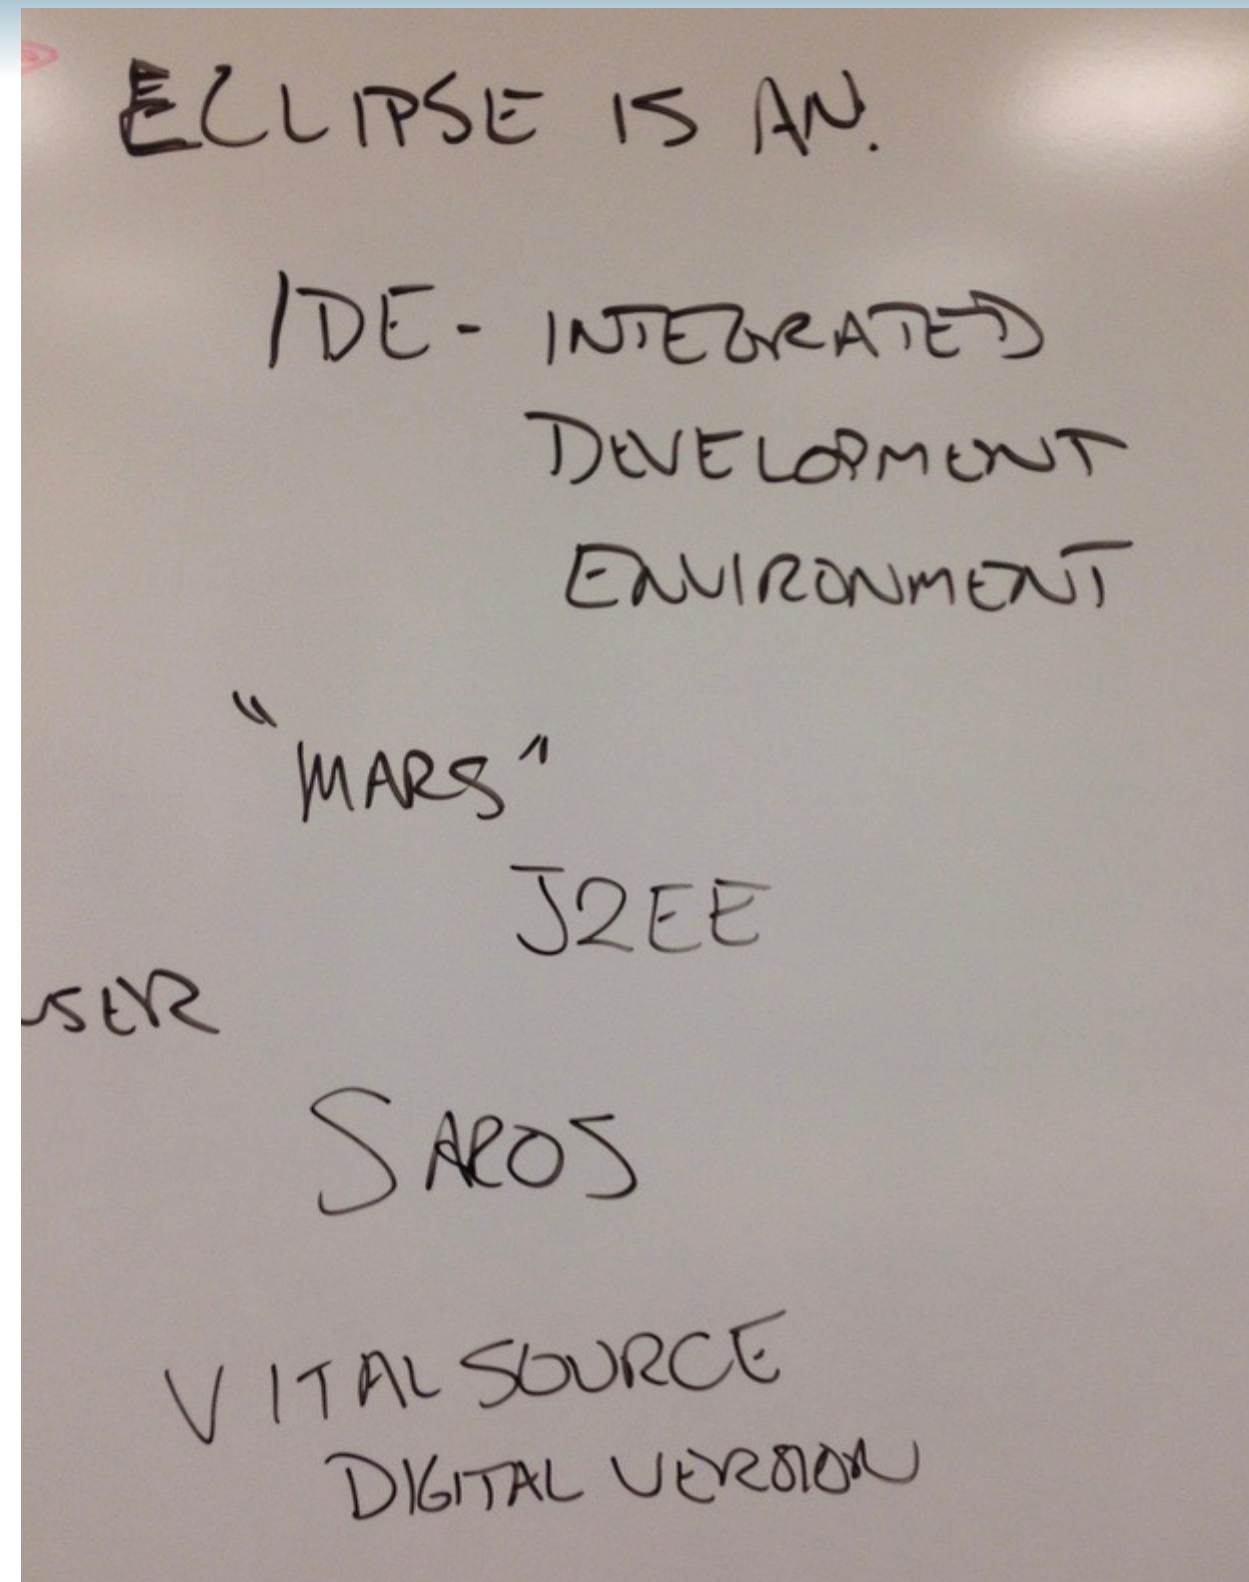 ECLIPSE IS AN.
IDE - INTEGRATED
DEVELOPMENT
ENVIRONMENT
"MARS"
J2EE
USER
SAROS
VITALSOURCE
DIGITAL VERSION